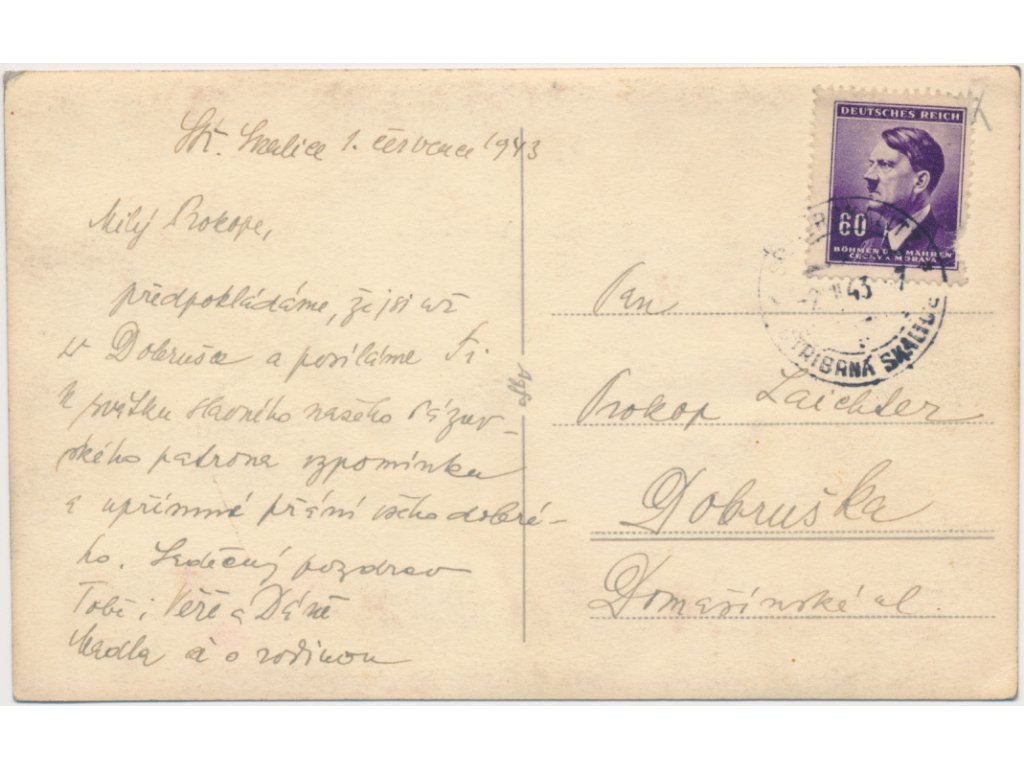 Stř. Skalice 1. července 1943
Milý Prokope,
předpokládáme, že jsi už
v Dobrušce a posíláme Ti
k svátku slavného našeho Sázav-
ského patrona vzpomínku
a upřímné přání všeho dobré-
ho. Srdečný pozdrav
Tobě i Věře a Dáně
Madla a s rodinou
Agfa
DEUTSCHES REICH
60
BÖHMEN UND MÄHREN
ČECHY A MORAVA
43
STŘÍBRNÁ SKALICE
Pan
Prokop Laichter
Dobruška
Domašínské ul.